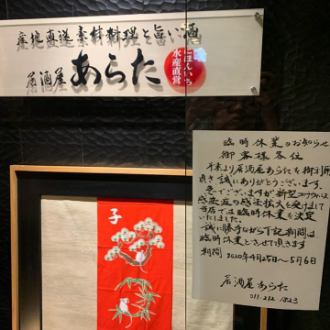 産地直送素材料理と旨い酒
居酒屋 あらた
にほんいち
水産直営
子
臨時休業のお知らせ
御客様各位
平素より居酒屋あらたを御利用
頂き誠にありがとうございます。
急でございますが新型コロナウィルス
感染症の感染拡大を受けまして
当店では臨時休業を決定
いたしました。
誠に勝手ながら下記期間は
臨時休業とさせて頂きます
期間 2020年4月25日〜5月6日
居酒屋あらた